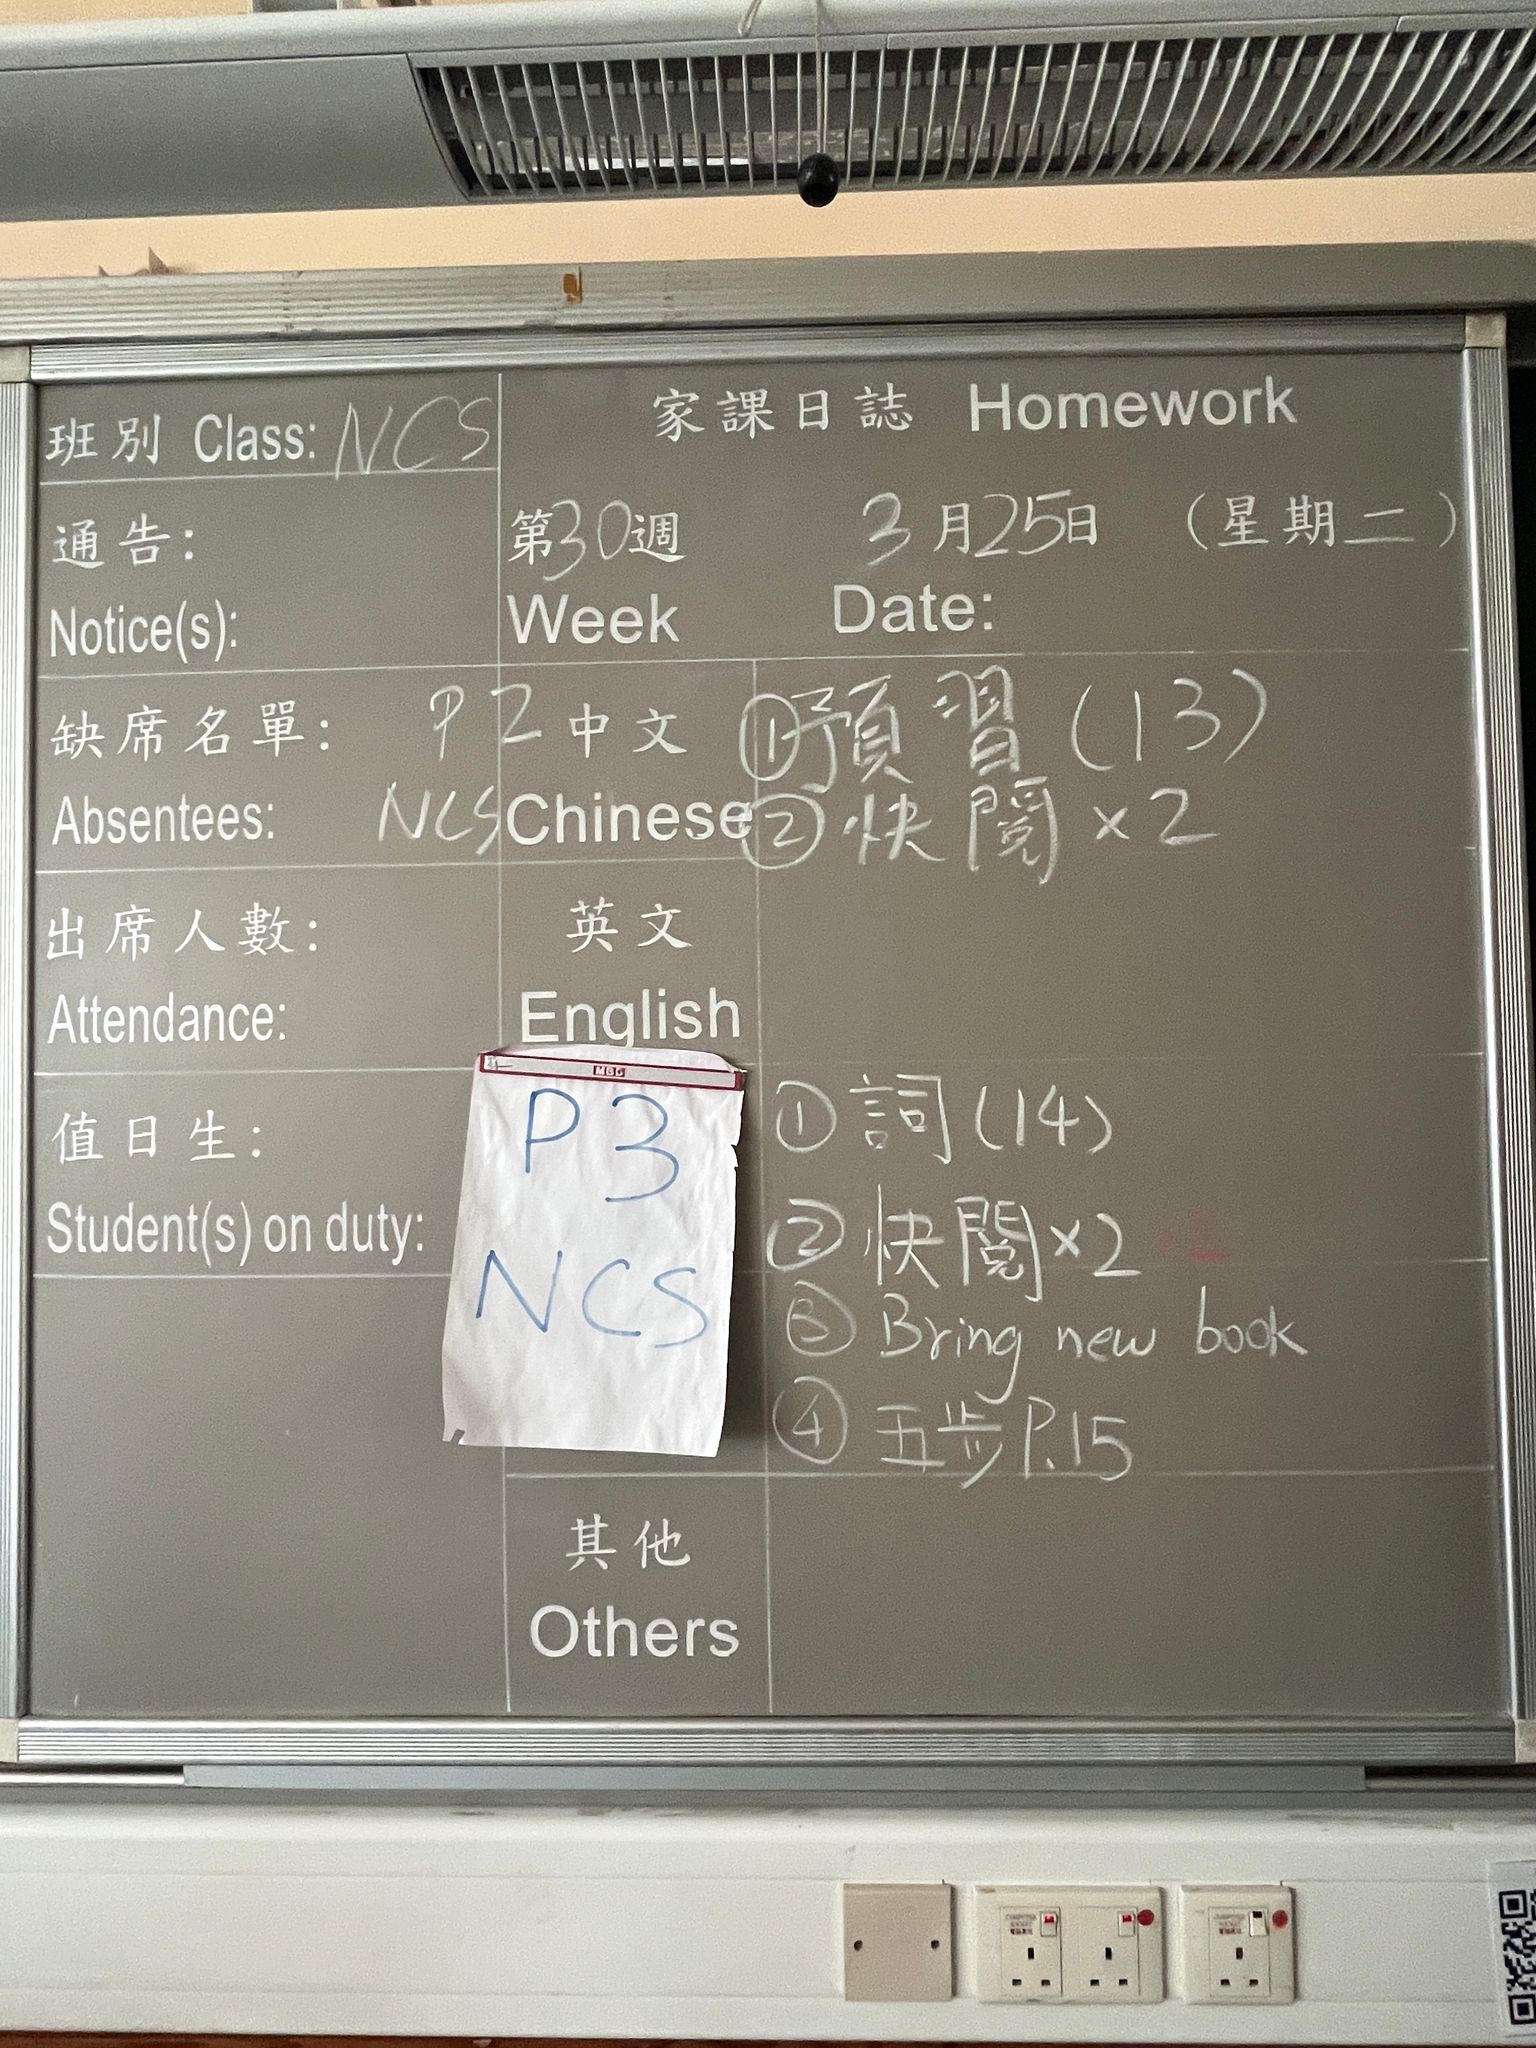 班別 Class: NCS
家課日誌 Homework
通告:
Notice(s):
第30週 3月25日 (星期二)
Week Date:
缺席名單:
Absentees:
P2
NCS
中文
Chinese
①預習(13)
②快閱×2
出席人數:
Attendance:
英文
English
值日生:
Student(s) on duty:
MBG
P3
NCS
①詞(14)
②快閱×2
③Bring new book
④五步P.15
其他
Others